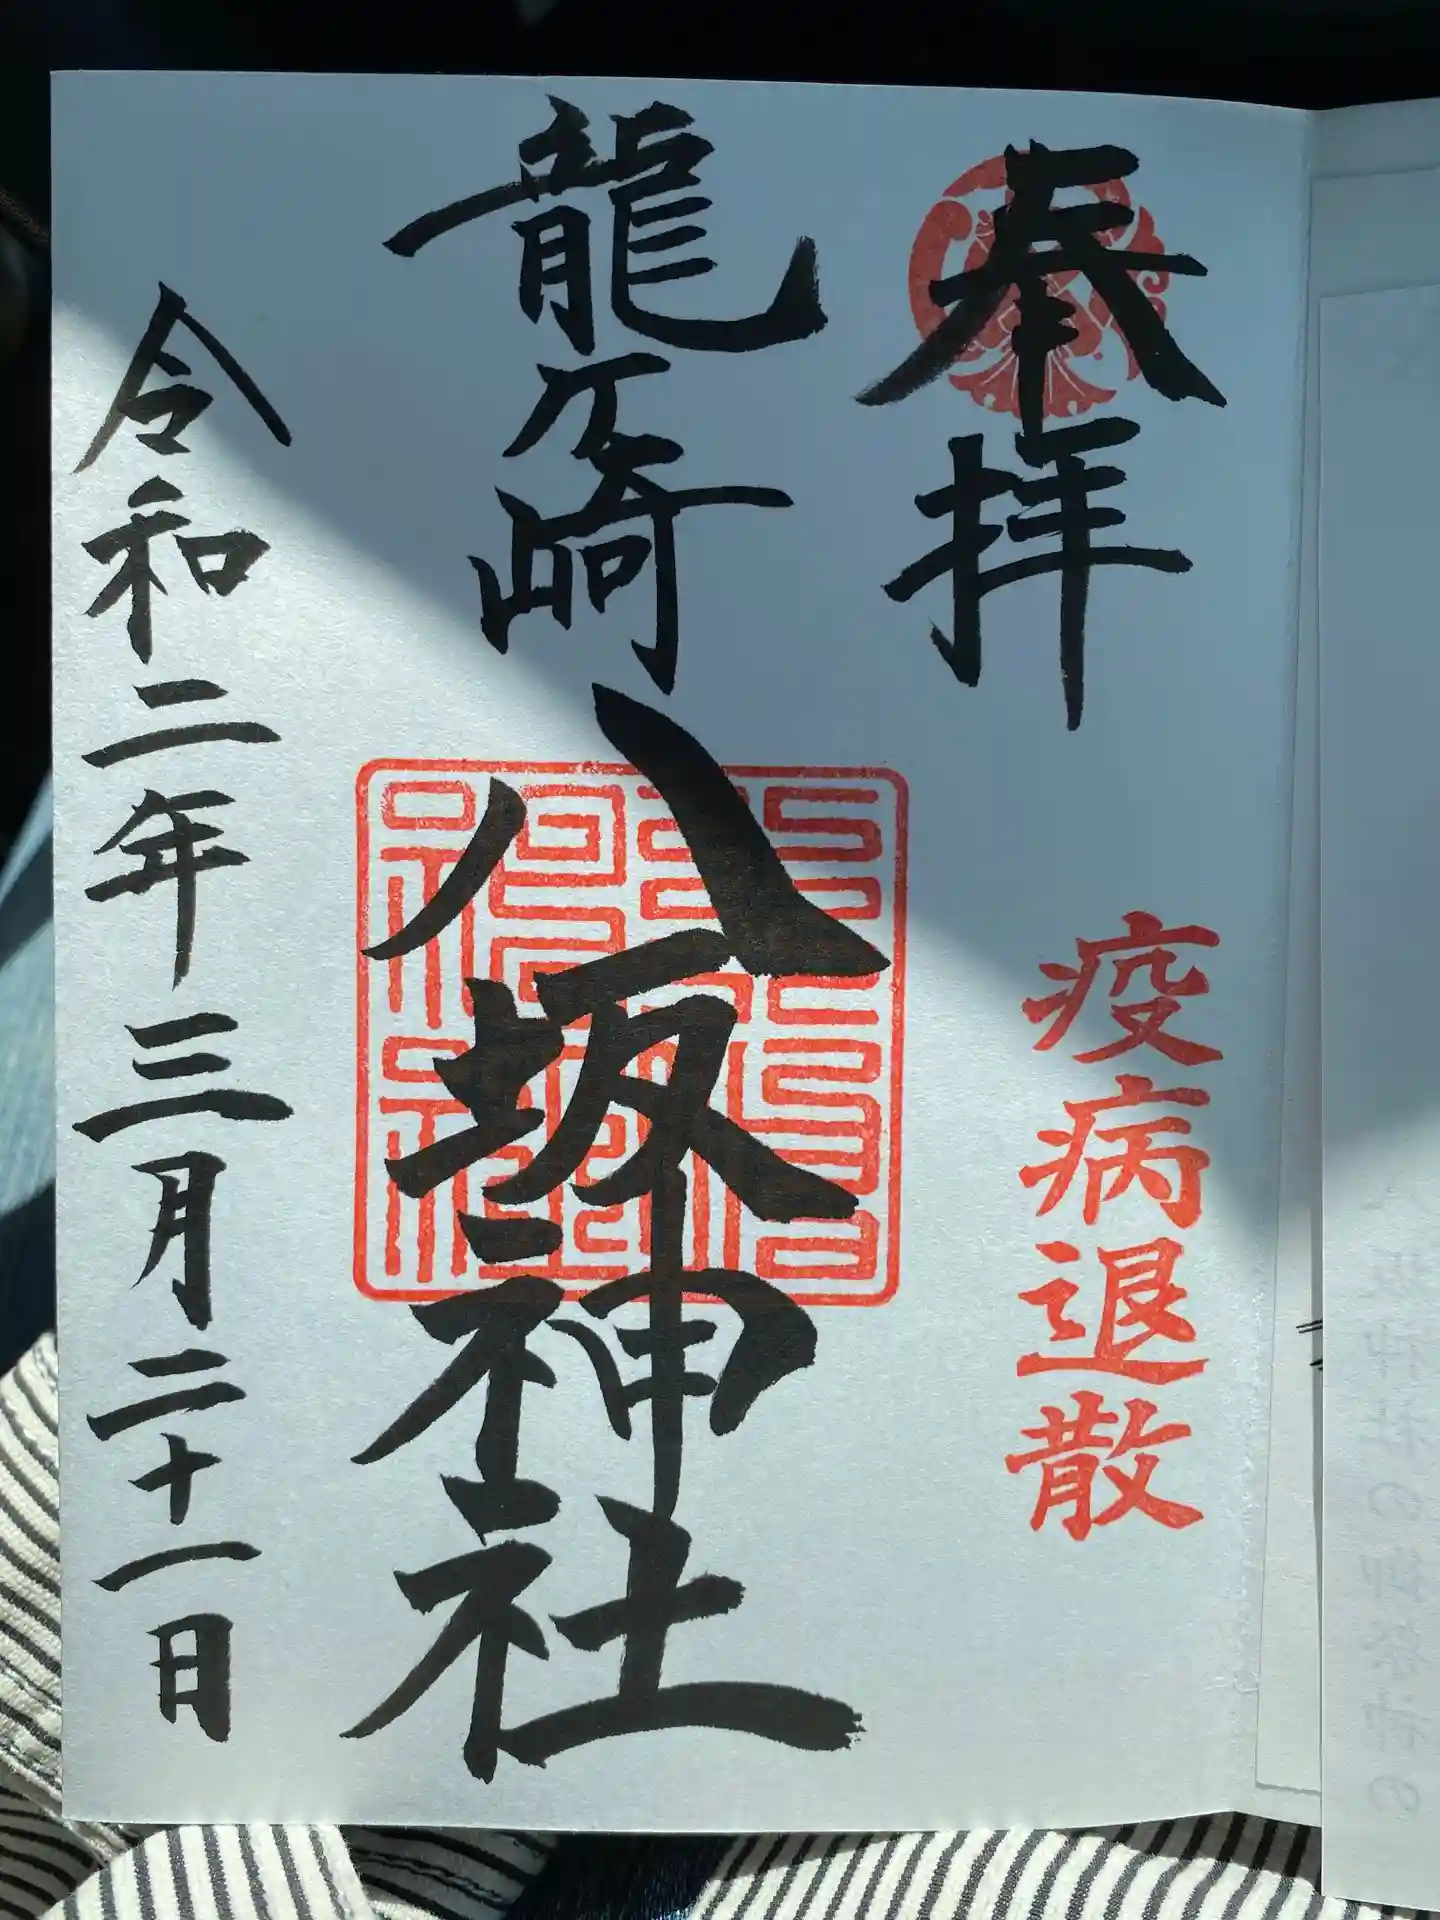 奉拝
疫病退散
龍ケ崎八坂神社
令和二年三月二十一日